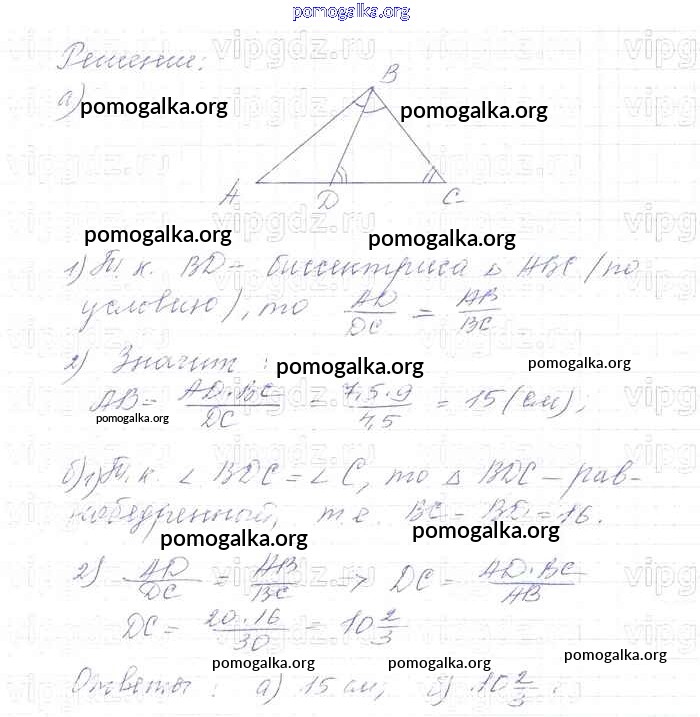 pomogalka.org
Решение:
а) pomogalka.org
pomogalka.org
B
A D C
pomogalka.org
pomogalka.org
1) Т. к. BD – биссектриса △ ABC (по
условию), то AD/DC = AB/BC
2) Значит :
pomogalka.org
pomogalka.org
AB = AD·BC/DC = 7,5·9/4,5 = 15 (см);
pomogalka.org
б) 1) Т. к. ∠ BDC = ∠ C, то △ BDC – рав-
нобедренный, т.е. BC = BD = 16.
pomogalka.org
pomogalka.org
2) AD/DC = AB/BC => DC = AD·BC/AB
DC = 20·16/30 = 10 2/3
pomogalka.org
pomogalka.org
pomogalka.org
Ответы : а) 15 см; б) 10 2/3.
vipgdz.ru